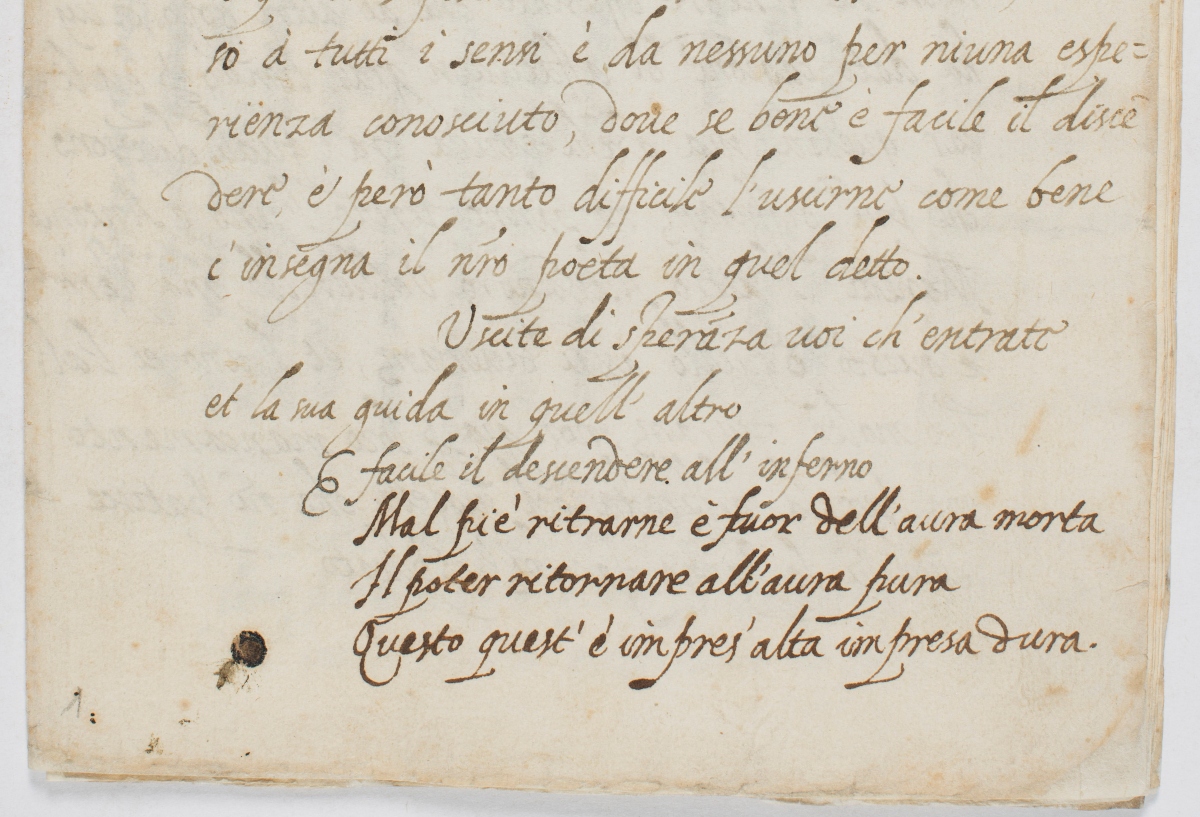 so à tutti i sensi è da nessuno per niuna espe=
rienza conosciuto, doue se bene è facile il discẽ
dere, è però tanto difficile l'uscirne come bene
c'insegna il nr̃o poeta in quel detto.
Uscite di sperãza uoi ch'entrate
et la sua guida in quell'altro
E facile il descendere all'inferno
Mal piè ritrarne è fuor dell'aura morta
Il poter ritornare all'aura pura
Questo quest'è impres'alta impresa dura.
1.